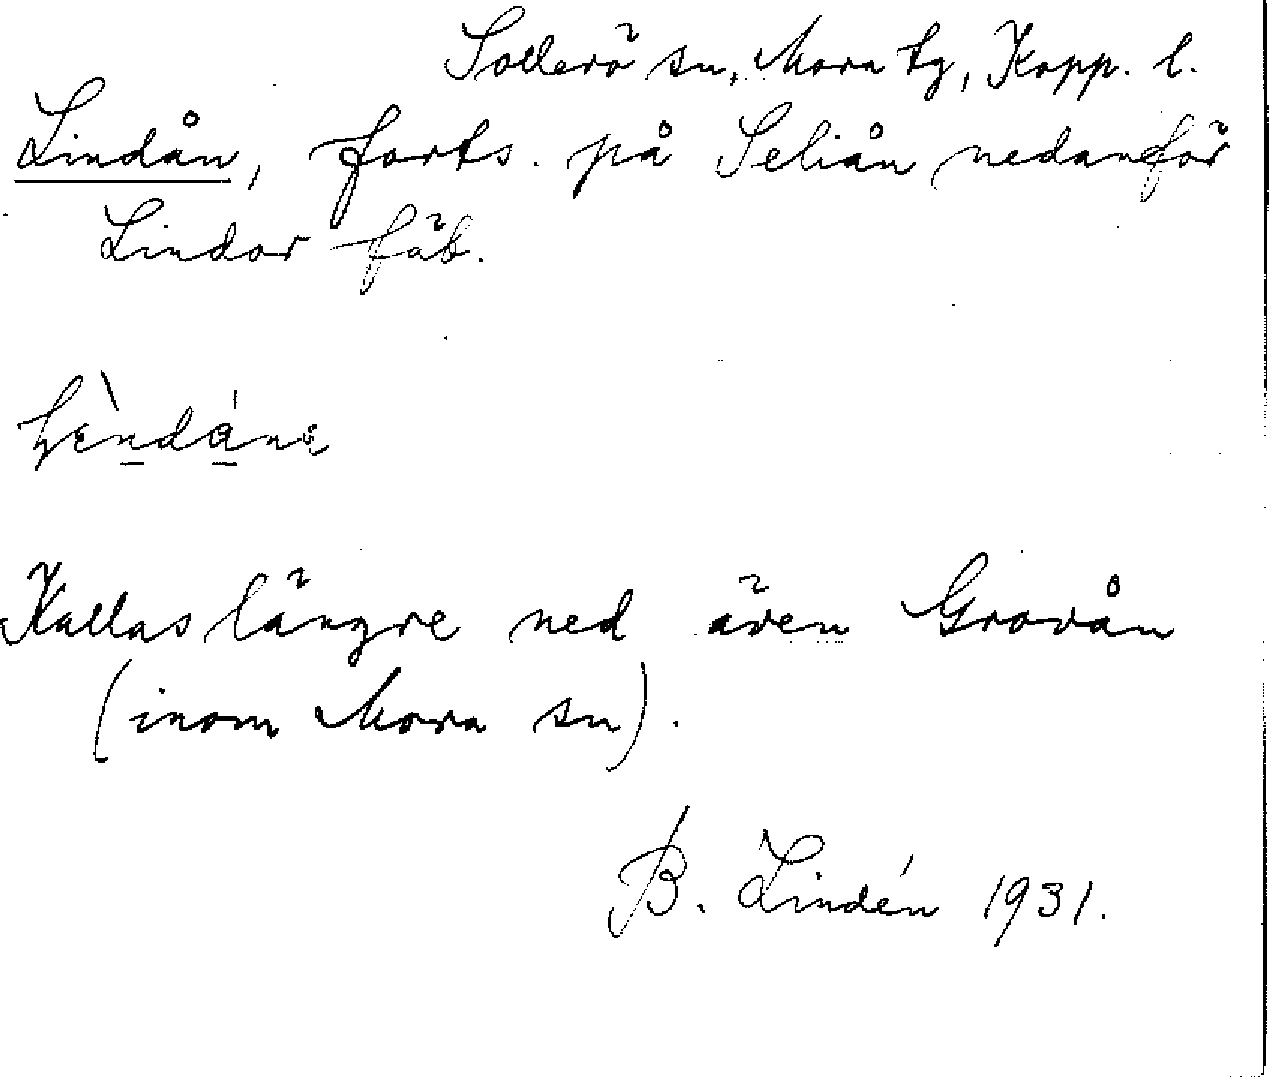 Sollerö sn, Mora tg, Kopp. l.
Lindån, forts. på Seliån nedanför
Lindor fäb.
Kallas längre ned även Grovån
(inom Mora sn).
B. Lindén 1931.